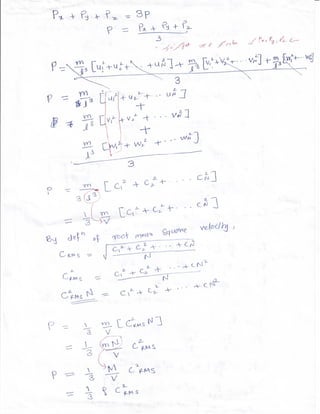 Px + Py + Pz = 3P
P = Px + Py + Pz / 3
P = m/l³ [u₁² + u₂² + ... + uN²] + m/l³ [v₁² + v₂² + ... vN²] + m/l³ [w₁² + w₂² + ... w²] / 3
P = m/l³ [u₁² + u₂² + ... uN²]
+
m/l³ [v₁² + v₂² + ... vN²]
+
m/l³ [w₁² + w₂² + ... wN²]
3
P = m/3(l³) [C₁² + C₂² + ... CN²]
= 1/3 m/V [C₁² + C₂² + ... CN²]
By defn of root mean square velocity,
CRMS = √(C₁² + C₂² + ... + CN²/N)
C²RMS = C₁² + C₂² + ... + CN² / N
C²RMS N = C₁² + C₂² + ... + CN²
P = 1/3 m/V [C²RMS N]
= 1/3 (mN)/V C²RMS
P = 1/3 M/V C²RMS
= 1/3 ρ C²RMS